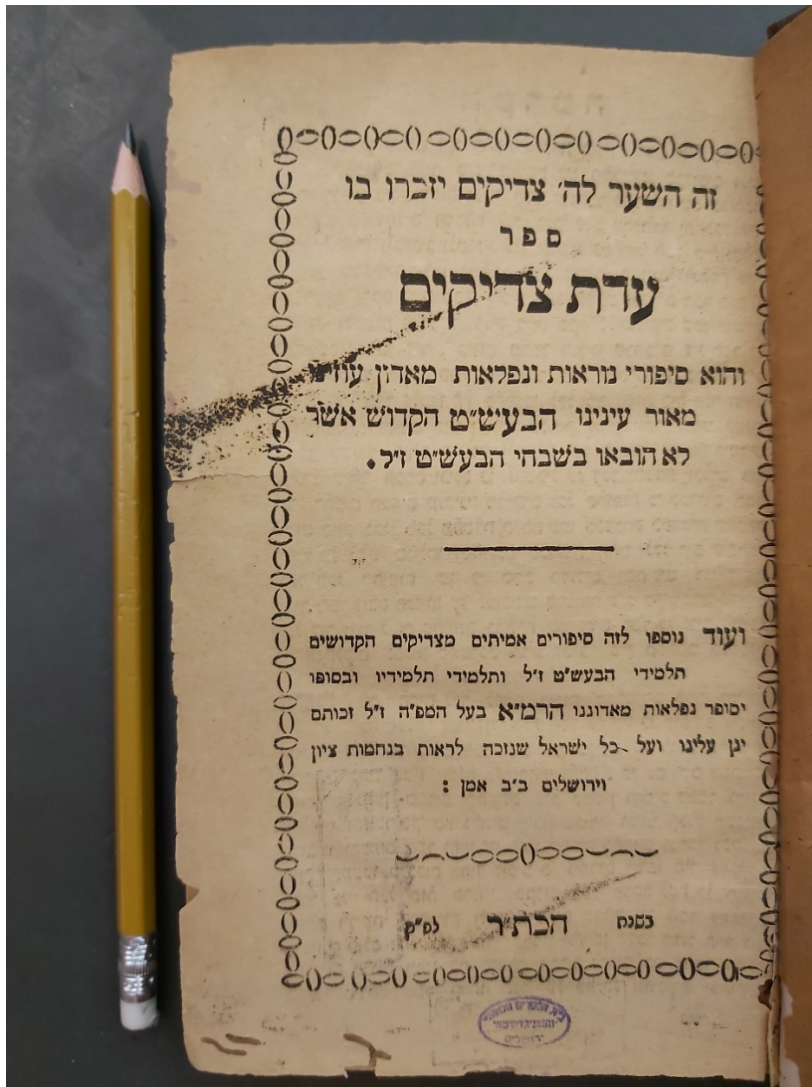 זה השער לה׳ צדיקים יזכרו בו
ספר
עדת צדיקים
והוא סיפורי נוראות ונפלאות מאדון עוזינו
מאור עינינו הבעש״ט הקדוש אשר
לא הובאו בשבחי הבעש״ט ז״ל.
ועוד נוספו לזה סיפורים אמיתים מצדיקים הקדושים
תלמידי הבעש״ט ז״ל ותלמידי תלמידיו ובסופו
יסופר נפלאות מאדוננו הרמ״א בעל המפ״ה ז״ל זכותם
יגן עלינו ועל כל ישראל שנזכה לראות בנחמות ציון
וירושלים ב״ב אמן :
בשנת הכת״ר לפ״ק